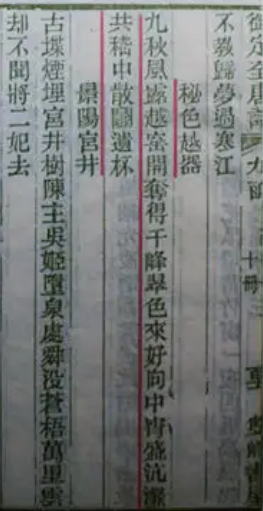 御定全唐詩
不教歸夢過寒江
秘色越器
九秋風露越窑開奪得千峰翠色來好向中宵盛沆瀣
共嵇中散鬭遺杯
景陽宮井
古堞煙埋宮井樹陳主吳姬墮泉處舜没蒼梧萬里雲
却不聞將二妃去